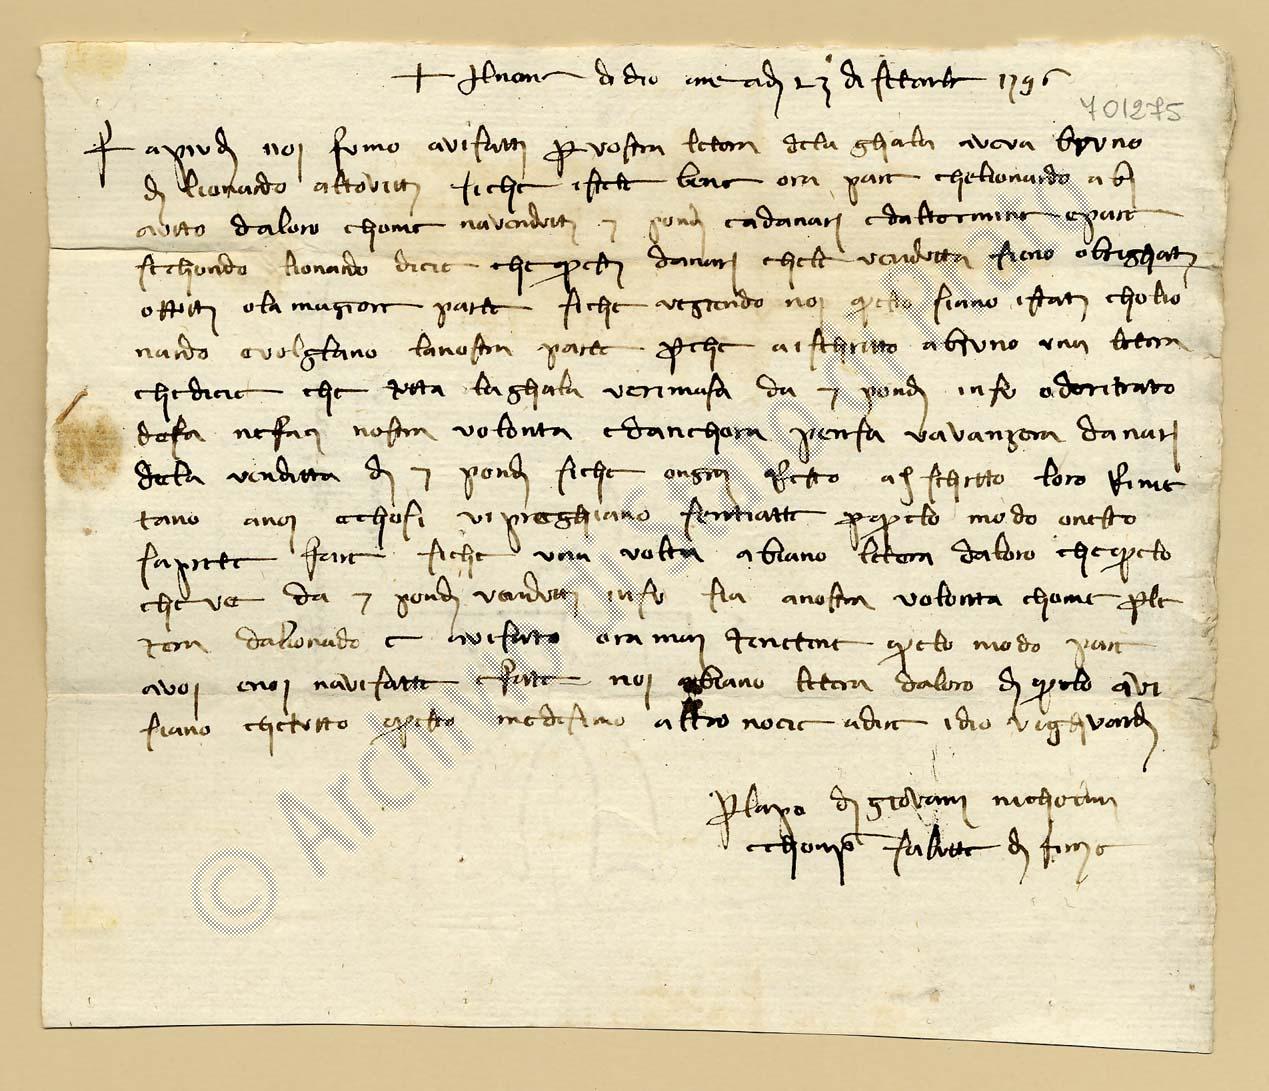 + Al nome di dio ame adi 23 di settebre 1396
701275
Fa piu di noi fumo avisatti per vostra letera dela ghala aveva bruno
di lionardo altoviti siche istete bene ora pare che lionardo abi
auto da loro chome navenduti 7 pondi e danari e dal termine e pare
sechondo lionardo dicie che questi danari chele venduta sieno obrighati
o tuti o la magiore parte siche vegiendo noi questo siano istati cho lio
nardo e volgliano la nostra parte perche ai schritto a bruno una letera
che dicie che tuta la ghala verimasa da 7 pondi in su
defa nefaci nostra volonta e danchora pensa vavanzera danari
dela venduta di 7 pondi siche ongni resto ai schritto loro rime
tano a noi e chosi vi preghiano senttiatte per quelo modo onesto
saprete fare siche una volta abiano letera da loro che quelo
che ve da 7 pondi venduti in su sia a nostra volonta chome per le
tera da lionado e avisato ora mai tenetene quelo modo pare
a voi e noi navisatte e fate noi abiano letera da loro di quelo avi
siano che tutto questo medesimo altro nocie a dire idio vi ghuardi
per lapo di giovani nicholini
e chonp salutte di firenze
© Archivio di Stato di Prato